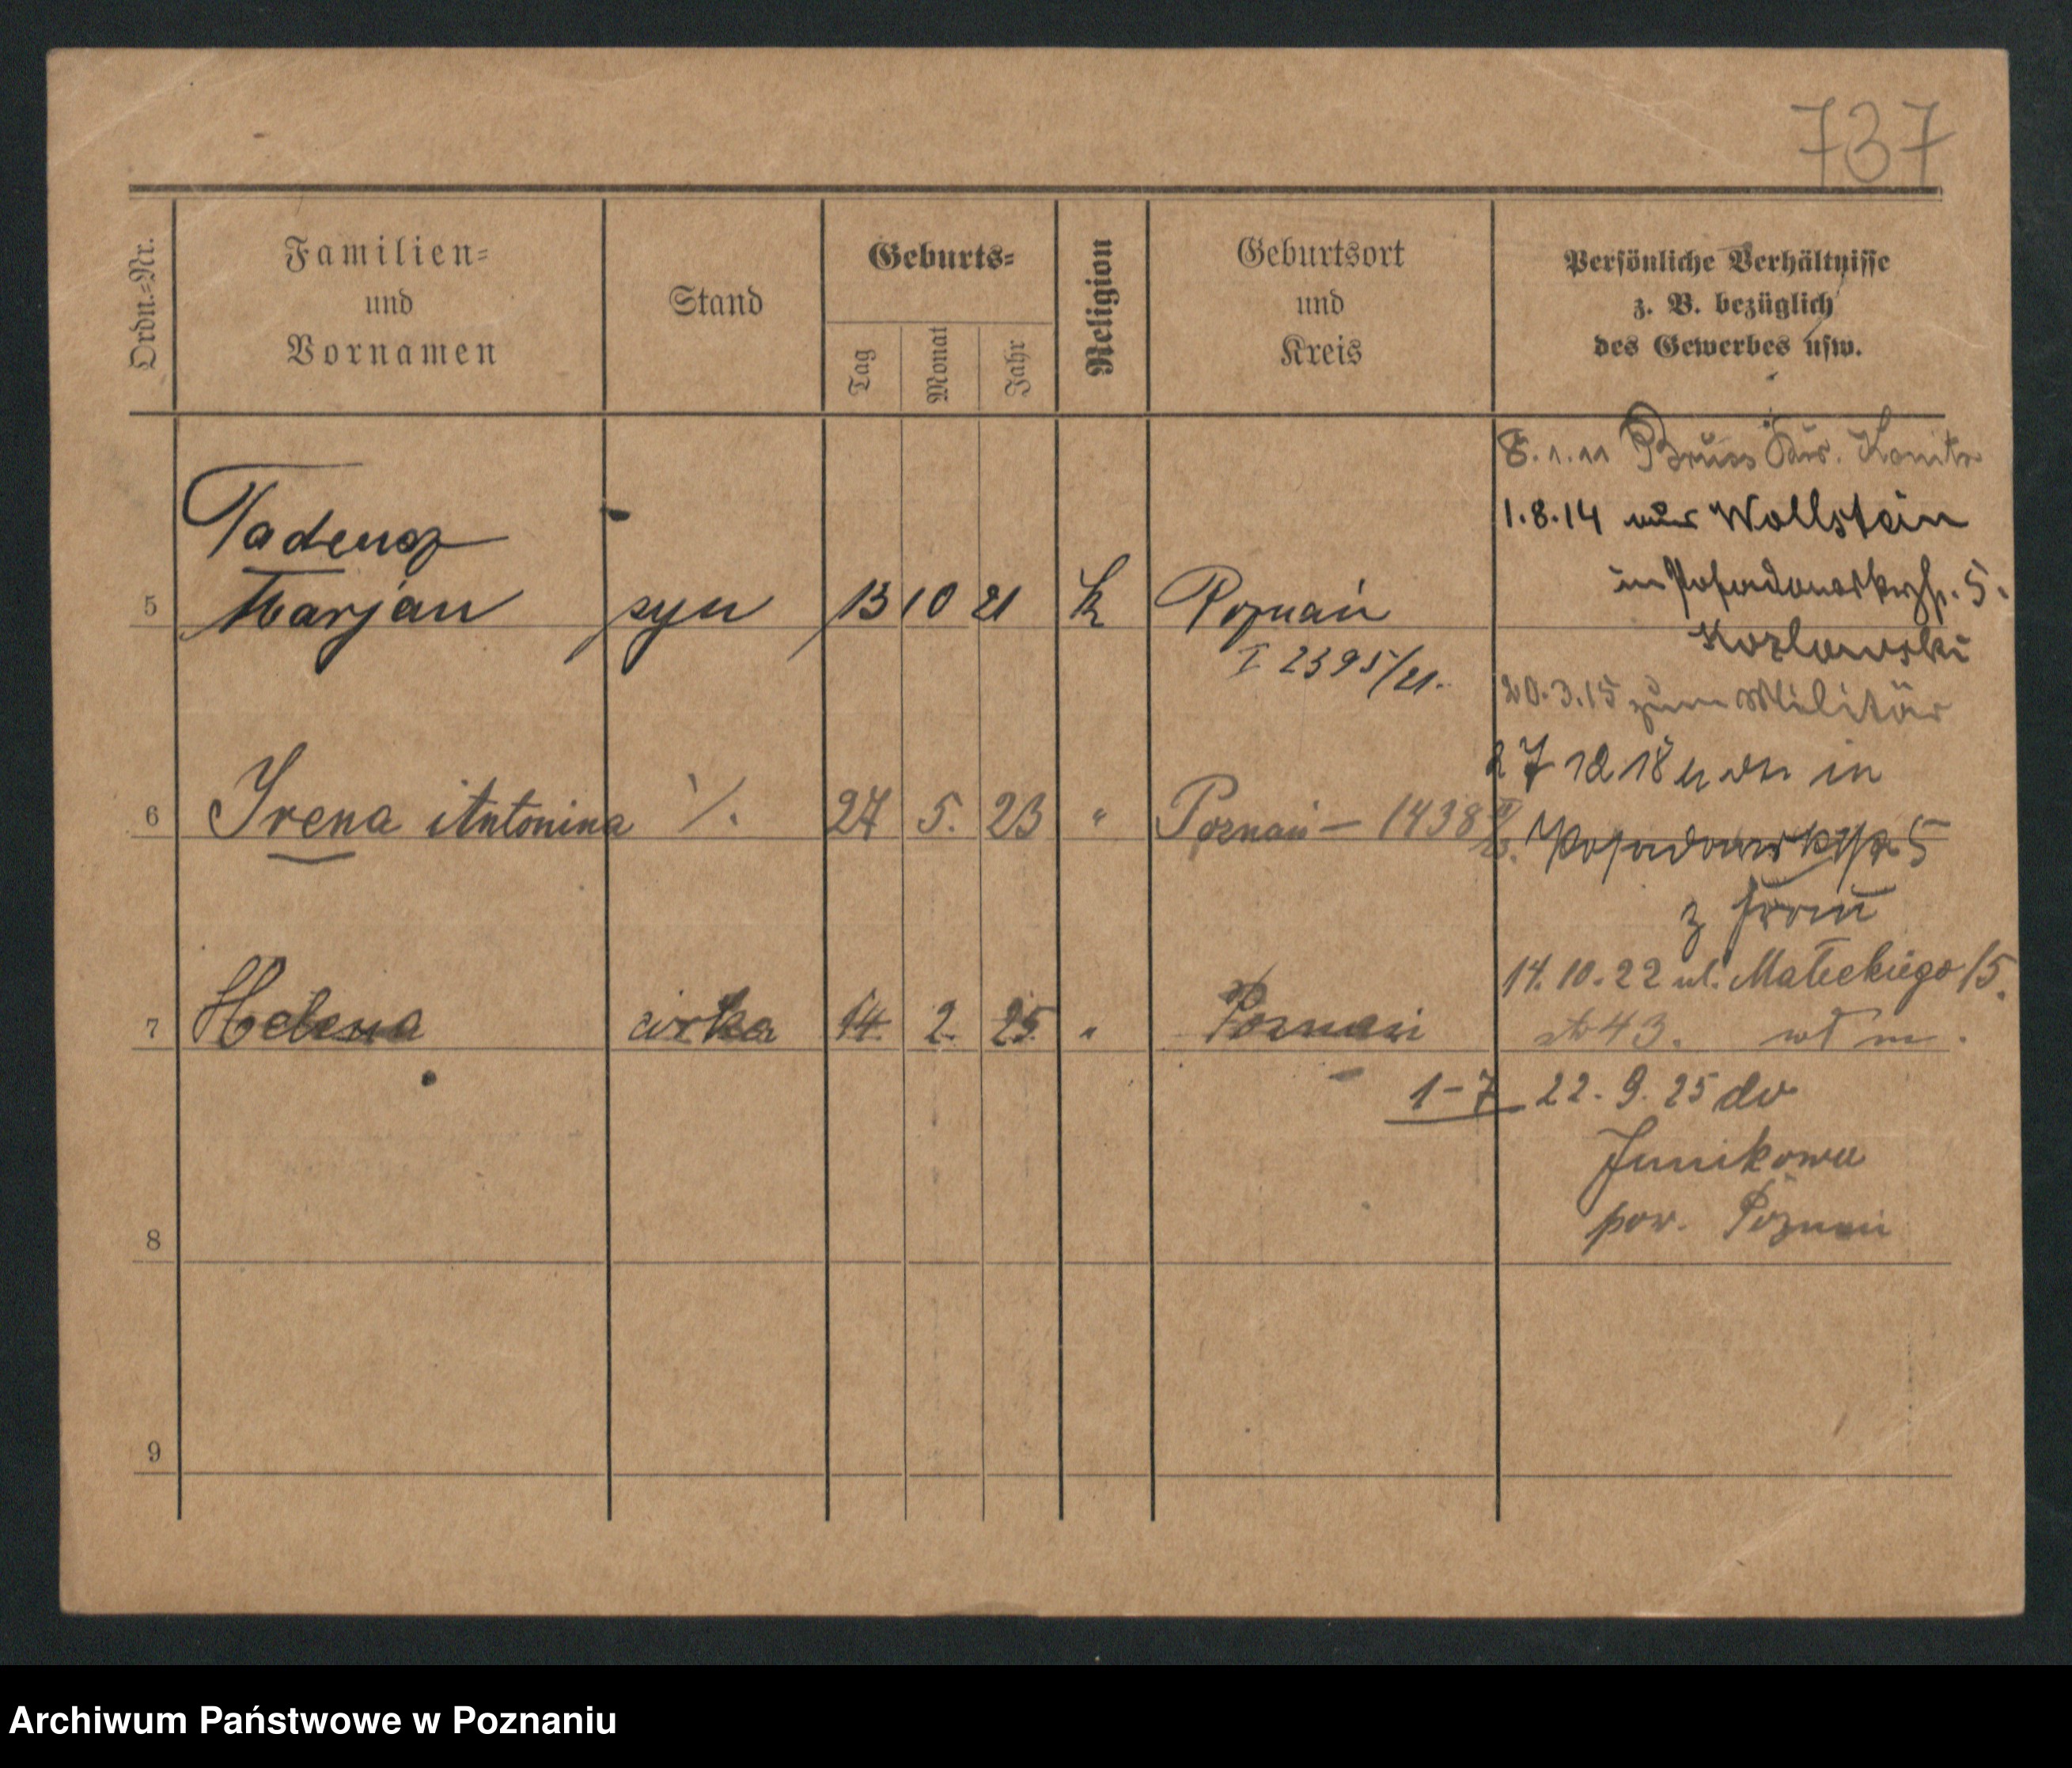 737
Ordn.=Nr.
Familien=
und
Vornamen
Stand
Geburts=
Tag
Monat
Jahr
Religion
Geburtsort
und
Kreis
Persönliche Verhältnisse
z. B. bezüglich
des Gewerbes usw.
Tadeusz
5 Marjan syn 13 10 21 k Poznań
I 2395/21.
6 Irena Antonina ٪. 27 5. 23 " Poznań — 1438
7 Helena córka 14 2. 25 " Poznań
8
9
8.1.11 Bruss Krs. Konitz
1.8.14 aus Wollstein
in Posadowskystr. 5.
Kozlowski
20.3.15 zum Militär
27 12 18 von in
Posadowskystr 5
z Frau
14.10.22 ul. Małeckiego 15.
43. wł m.
1-7 22.9.25 do
Junikowa
pow. Poznań
Archiwum Państwowe w Poznaniu